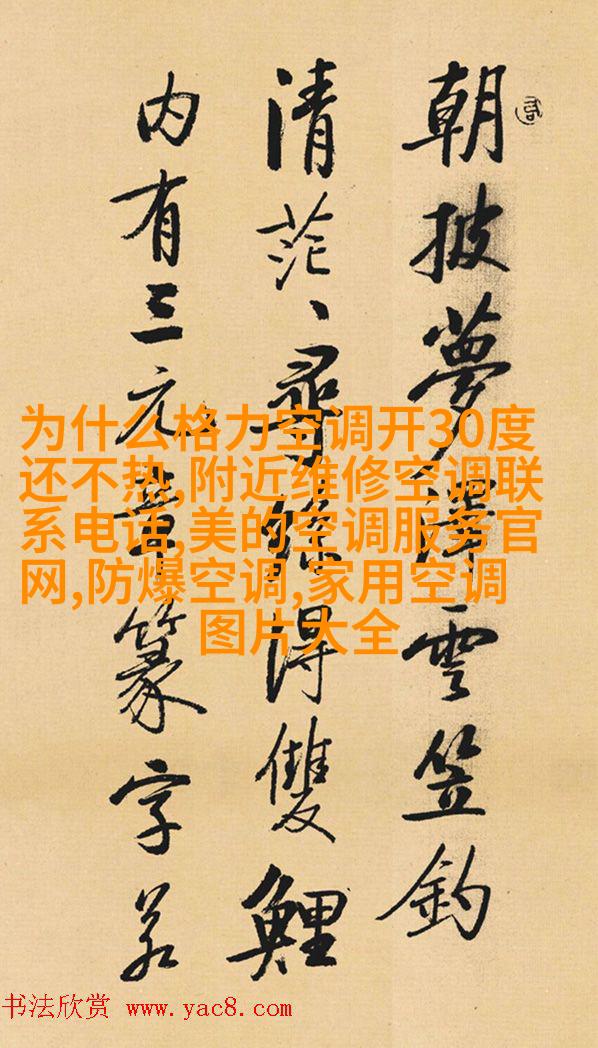 朝披夢澤雲笠釣
清茫、尋絲得雙鯉
内有三元章篆字若
为什么格力空调开30度
还不热,附近维修空调联
系电话,美的空调服务官
网,防爆空调,家用空调
图片大全
书法欣赏 www.yac8.com